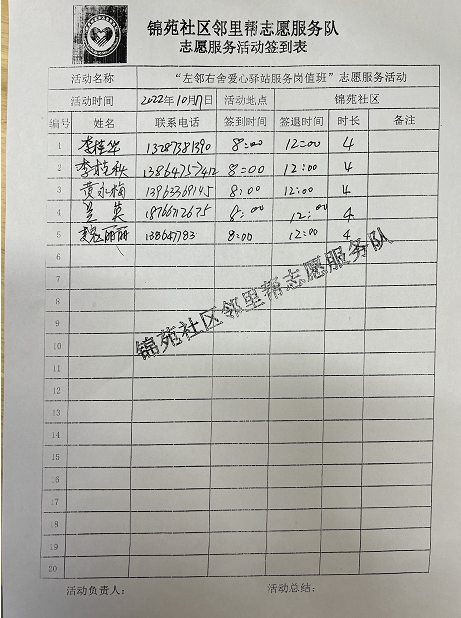 锦苑社区邻里帮志愿服务队
志愿服务活动签到表
活动名称 “左邻右舍爱心驿站服务岗值班”志愿服务活动
活动时间 2022年10月17日 活动地点 锦苑社区
编号 姓名 联系电话 签到时间 签退时间 时长 备注
1 李桂华 13287381390 8:00 12:00 4
2 李枝秋 8:00 12:00 4
3 黄永梅 13963369145 8:00 12:00 4
4 兰英 18766712675 8:00 12:00 4
5 丽丽 8:00 12:00 4
6
7
8
9
锦苑社区邻里帮志愿服务队
10
11
12
13
14
15
16
17
18
19
20
活动负责人: 活动总结: